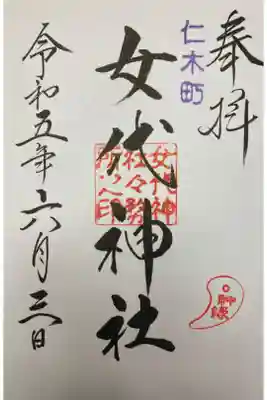 奉拝
仁木町
女代神社
女代神
社々務
所之印
令和五年六月三日